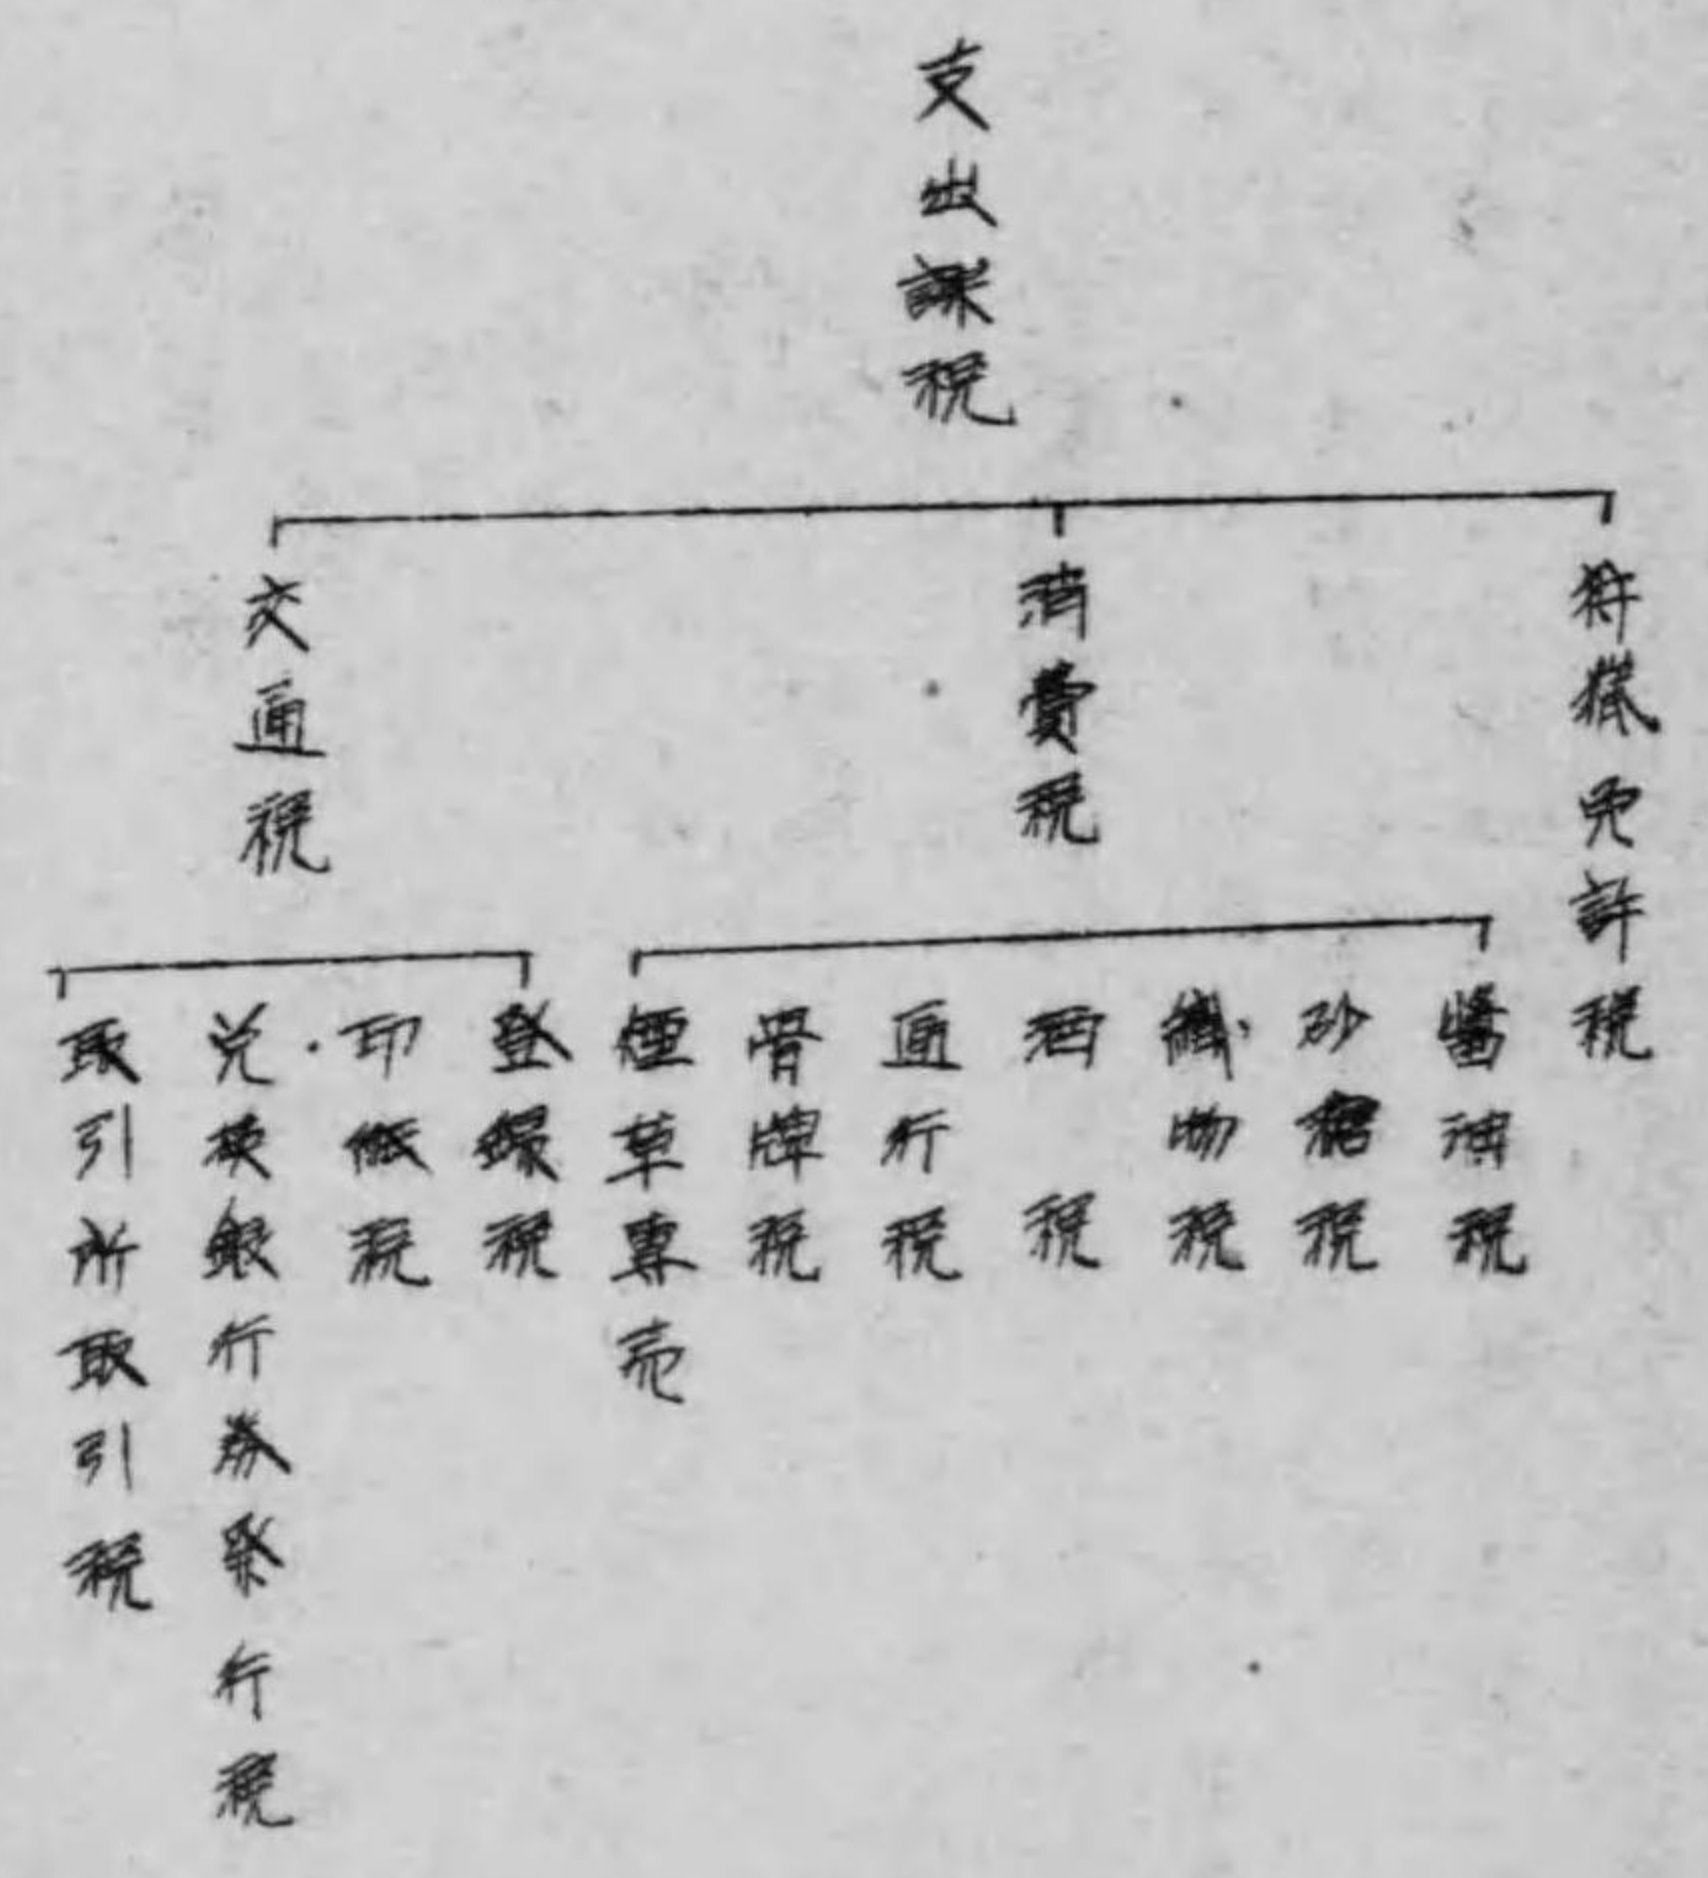 支出課税
狩猟免許税
消費税
醤油税
砂糖税
織物税
酒税
通行税
骨牌税
煙草専売
交通税
登録税
印紙税
兌換銀行券発行税
取引所取引税